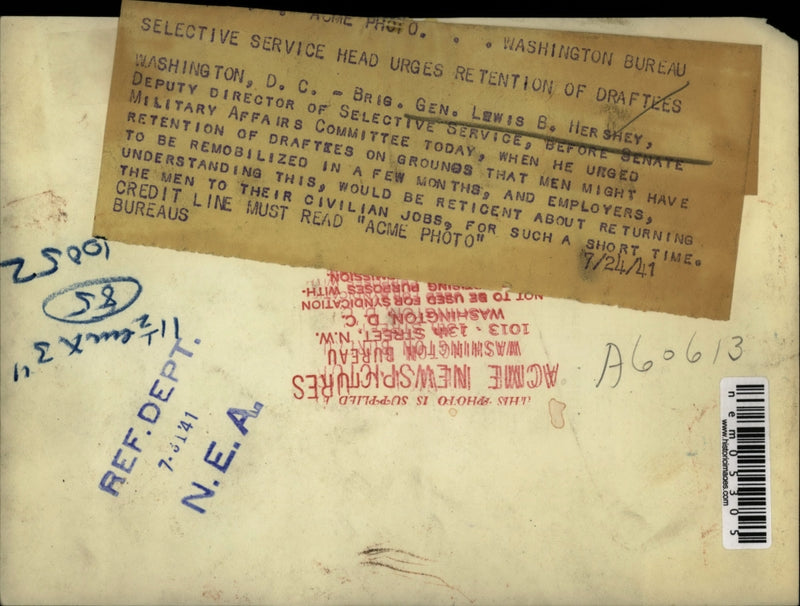 ACME PHOTO. . . WASHINGTON BUREAU
SELECTIVE SERVICE HEAD URGES RETENTION OF DRAFTEES
WASHINGTON, D. C. - BRIG. GEN. LEWIS B. HERSHEY,
DEPUTY DIRECTOR OF SELECTIVE SERVICE, BEFORE SENATE
MILITARY AFFAIRS COMMITTEE TODAY, WHEN HE URGED
RETENTION OF DRAFTEES ON GROUNDS THAT MEN MIGHT HAVE
TO BE REMOBILIZED IN A FEW MONTHS, AND EMPLOYERS,
UNDERSTANDING THIS, WOULD BE RETICENT ABOUT RETURNING
THE MEN TO THEIR CIVILIAN JOBS, FOR SUCH A SHORT TIME.
CREDIT LINE MUST READ "ACME PHOTO"
BUREAUS
7/24/41
10052
85
11½ em X 3"
THIS PHOTO IS SUPPLIED
ACME NEWSPICTURES
WASHINGTON BUREAU
1013 - 13th STREET, N.W.
WASHINGTON, D. C.
NOT TO BE USED FOR SYNDICATION
PURPOSES WITH-
A60613
REF. DEPT.
41
N.E.A.
nem05305
www.historicimages.com